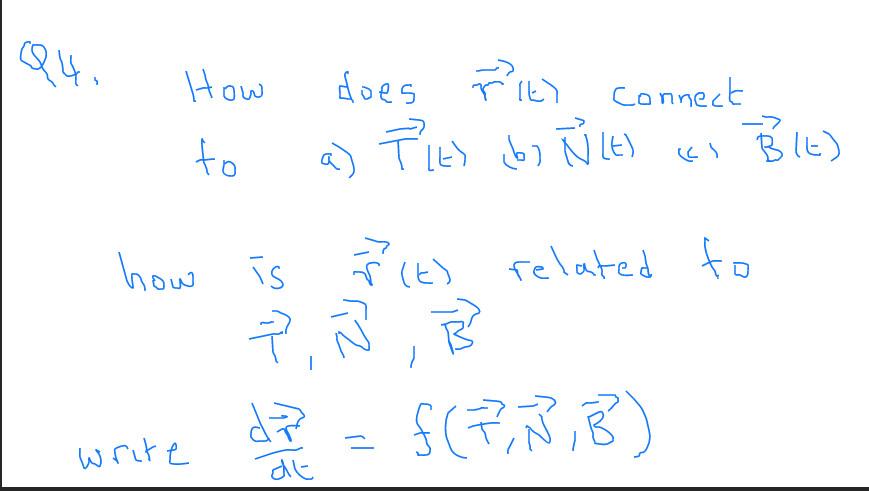 Q4. How does r⃗(t) connect
to a) T⃗(t) (b) N⃗(t) (c) B⃗(t)
how is r⃗(t) related to
T⃗, N⃗, B⃗
write dr⃗/dt = f(T⃗, N⃗, B⃗)